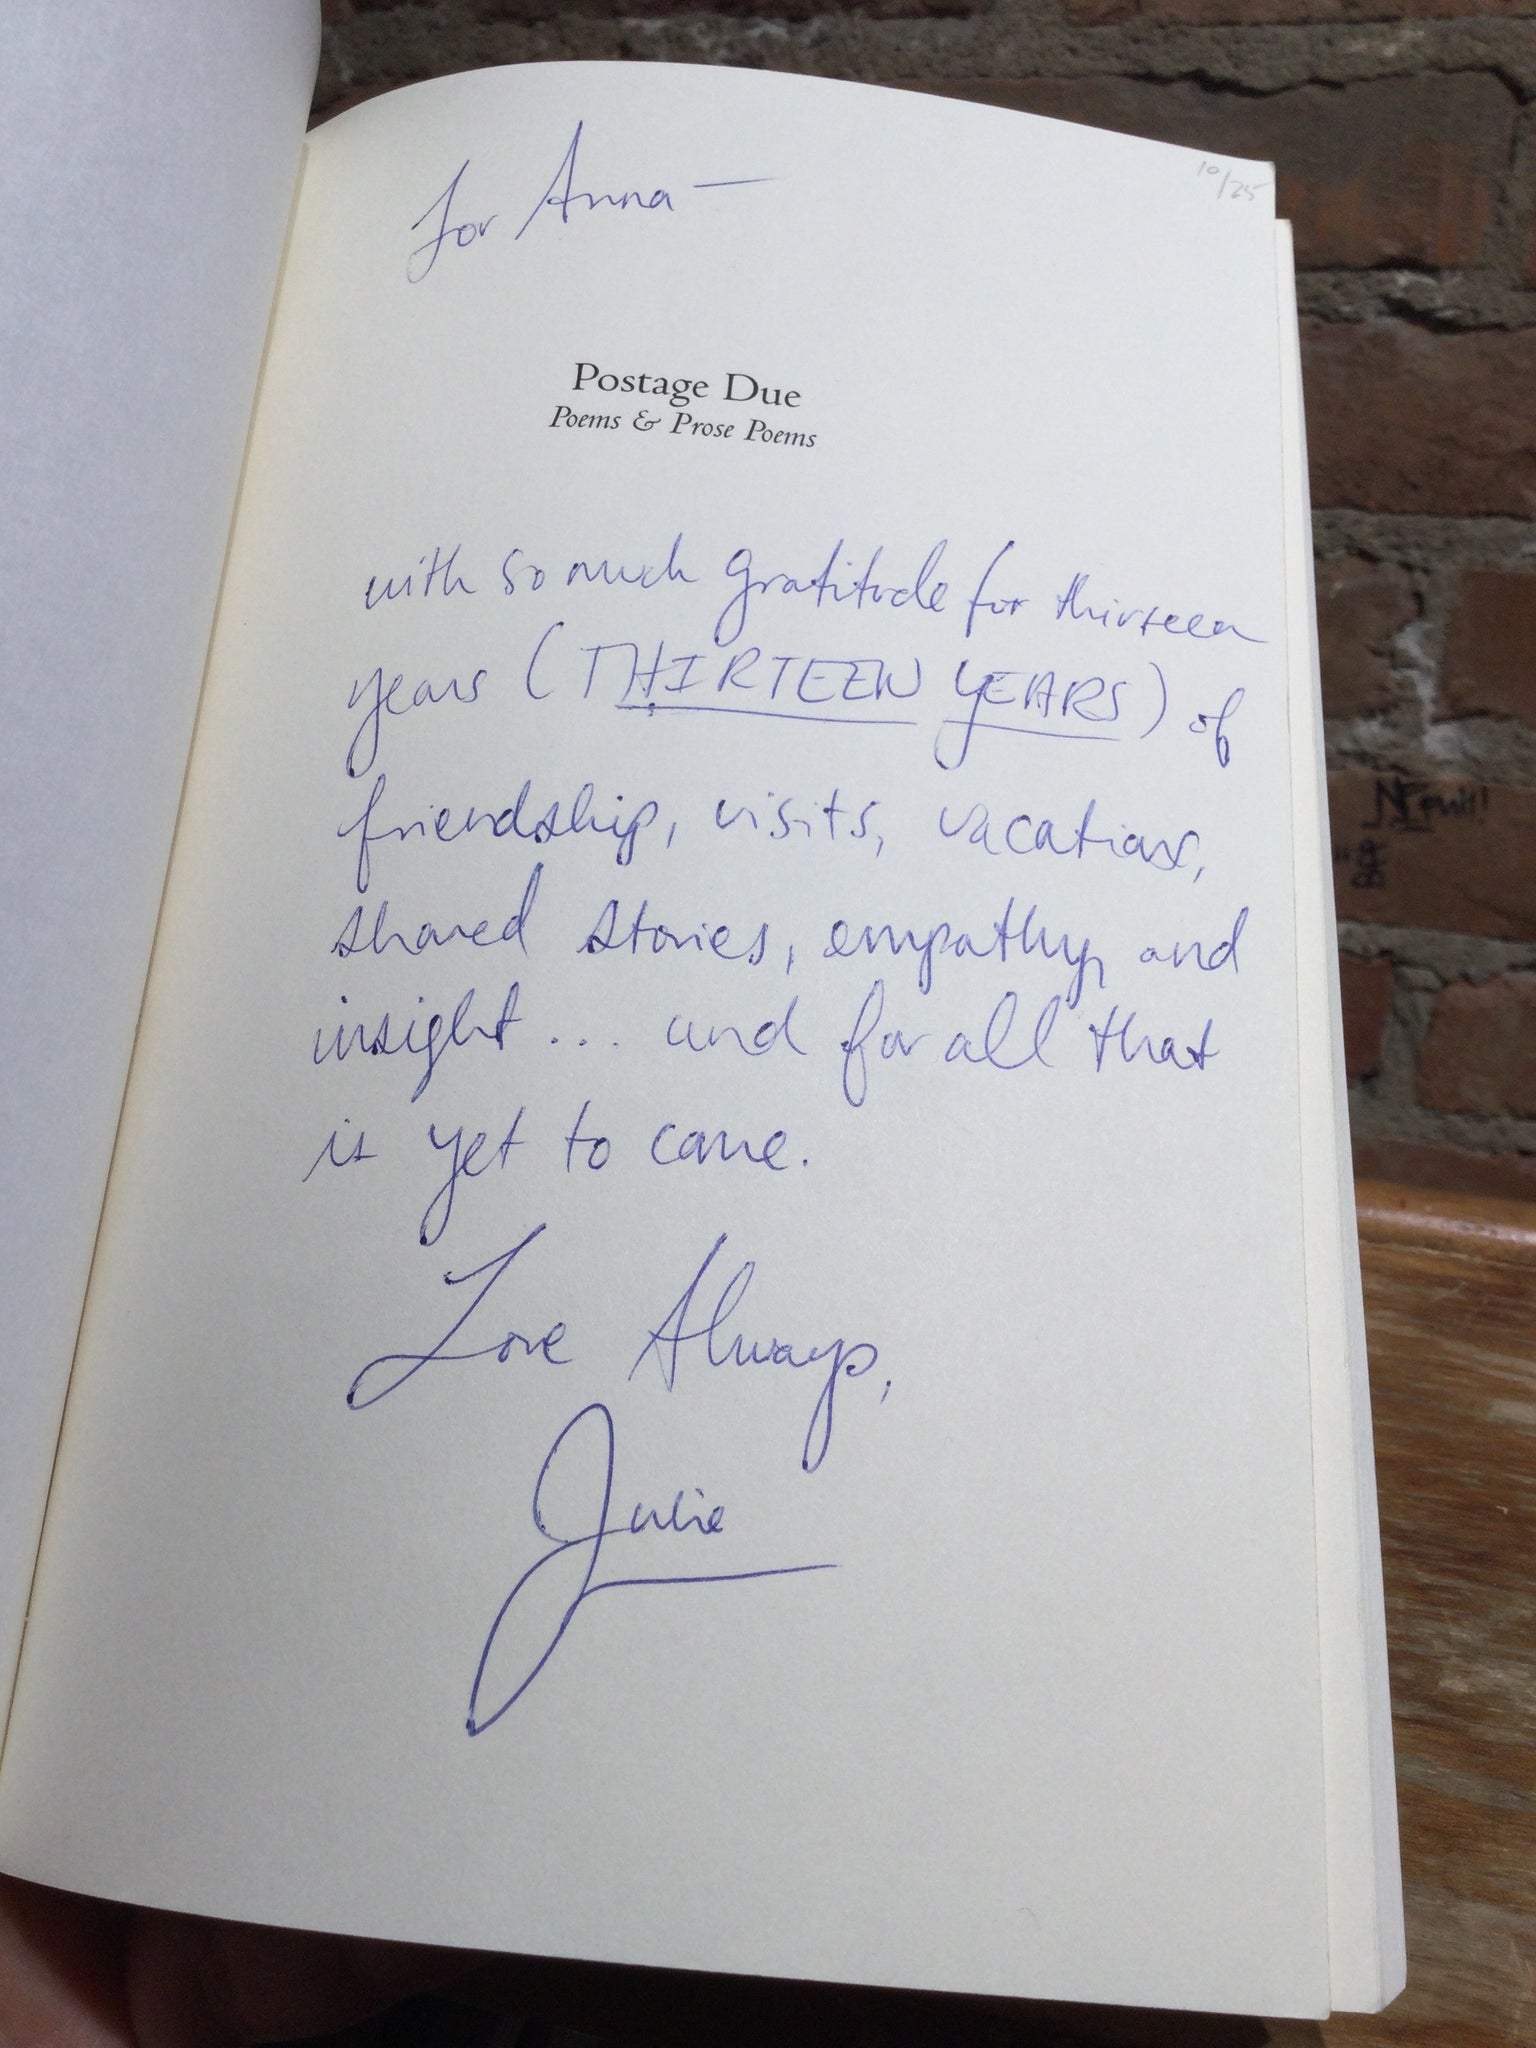 for Anna —
10/25
Postage Due
Poems & Prose Poems
with so much gratitude for thirteen
years (THIRTEEN YEARS) of
friendship, visits, vacations,
shared stories, empathy, and
insight ... and for all that
is yet to come.
Love Always,
Julie